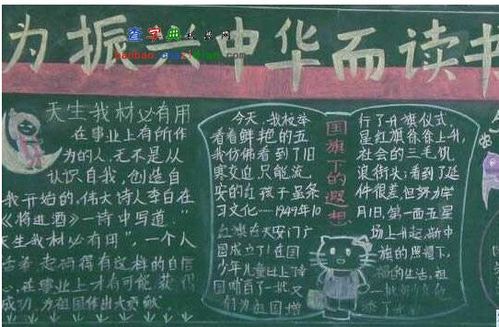 为振兴中华而读书
查字典
天生我材必有用
在事业上有所作
为的人，无不是从
认识自我，创造自
我开始的，伟大诗人李白在
《将进酒》一诗中写道“
天生我材必有用”，一个人
有这样的自信
在事业上才有可能获得
成功，为祖国作出大贡献
国旗下的遐想
今天，我校举
看着鲜艳的五
我仿佛看到了旧
寒交迫，只能流
安的红孩子虽条
习文化……1949年10
红旗在天安门广
国成立了！在国
少年儿童
国哺育了一批又
行了升旗仪式，
星红旗徐徐上升，
社会的三毛饥
浪街头；看到了延
件很差，但努力学
月1日，第一面五星
场上升起，新中
旗的照耀下，
的生活，祖